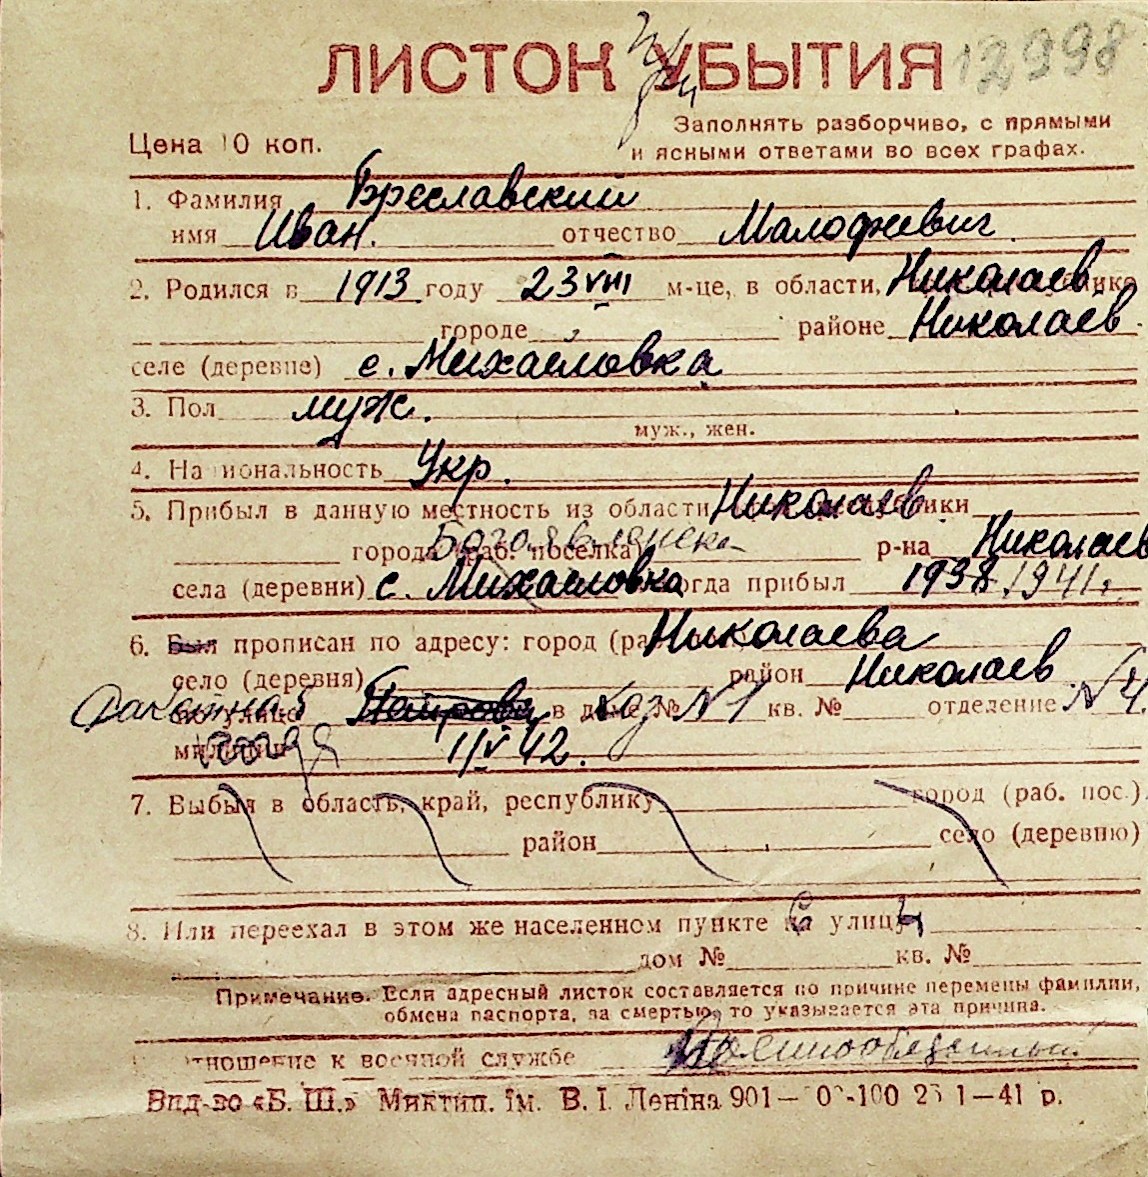 ЛИСТОК УБЫТИЯ 12998
Цена 10 коп.
Заполнять разборчиво, с прямыми
и ясными ответами во всех графах.
1. Фамилия Бреславский
имя Иван. отчество Малофеевич
2. Родился в 1913 году 23 VIII м-це, в области, Николаев.
городе районе Николаев
селе (деревне) с. Михайловка
3. Пол муж.
муж., жен.
4. Национальность Укр.
5. Прибыл в данную местность из области, Николаев. республики
города (раб. поселка) Богоявленск р-на Николаев
села (деревни) с. Михайловка когда прибыл 1938 1941.
6. Был прописан по адресу: город (ра Николаева
село (деревня) район Николаев
по улице Петрова в доме № каз №1 кв. № отделение №4
милиции 1/V 42.
7. Выбыл в область, край, республику город (раб. пос.)
район село (деревню)
8. Или переехал в этом же населенном пункте с улицы
дом № кв. №
Примечание. Если адресный листок составляется по причине перемены фамилии,
обмена паспорта, за смертью, то указывается эта причина.
отношение к военной службе Военнообязанный
Вид-во «Б. Ш.» Миктип. ім. В. І. Леніна 901— -100 1—41 р.